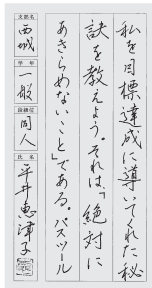 私を目標達成に導いてくれた秘
訣を教えよう。それは、「絶対に
あきらめないこと」である。パスツール
支部名
西城
学年
一般
段級位
同人
氏名
平井恵津子